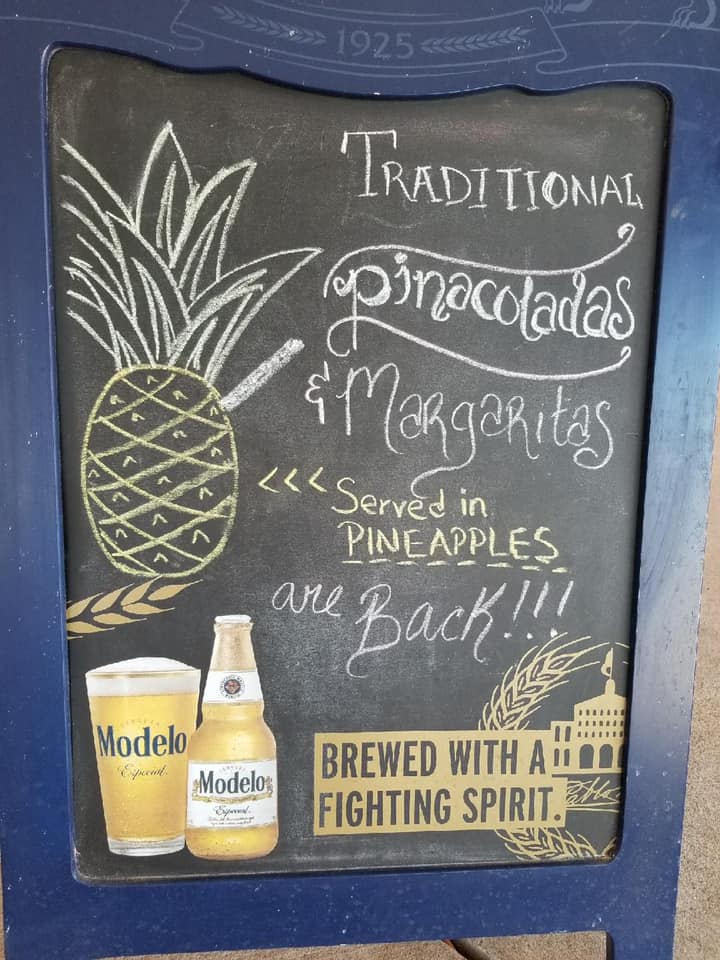 1925
TRADITIONAL
pinacoladas
& MARGARitas
<<< Served in
PINEAPPLES
are Back!!!
CERVEZA
Modelo
Especial.
Modelo
Especial
BREWED WITH A
FIGHTING SPIRIT.